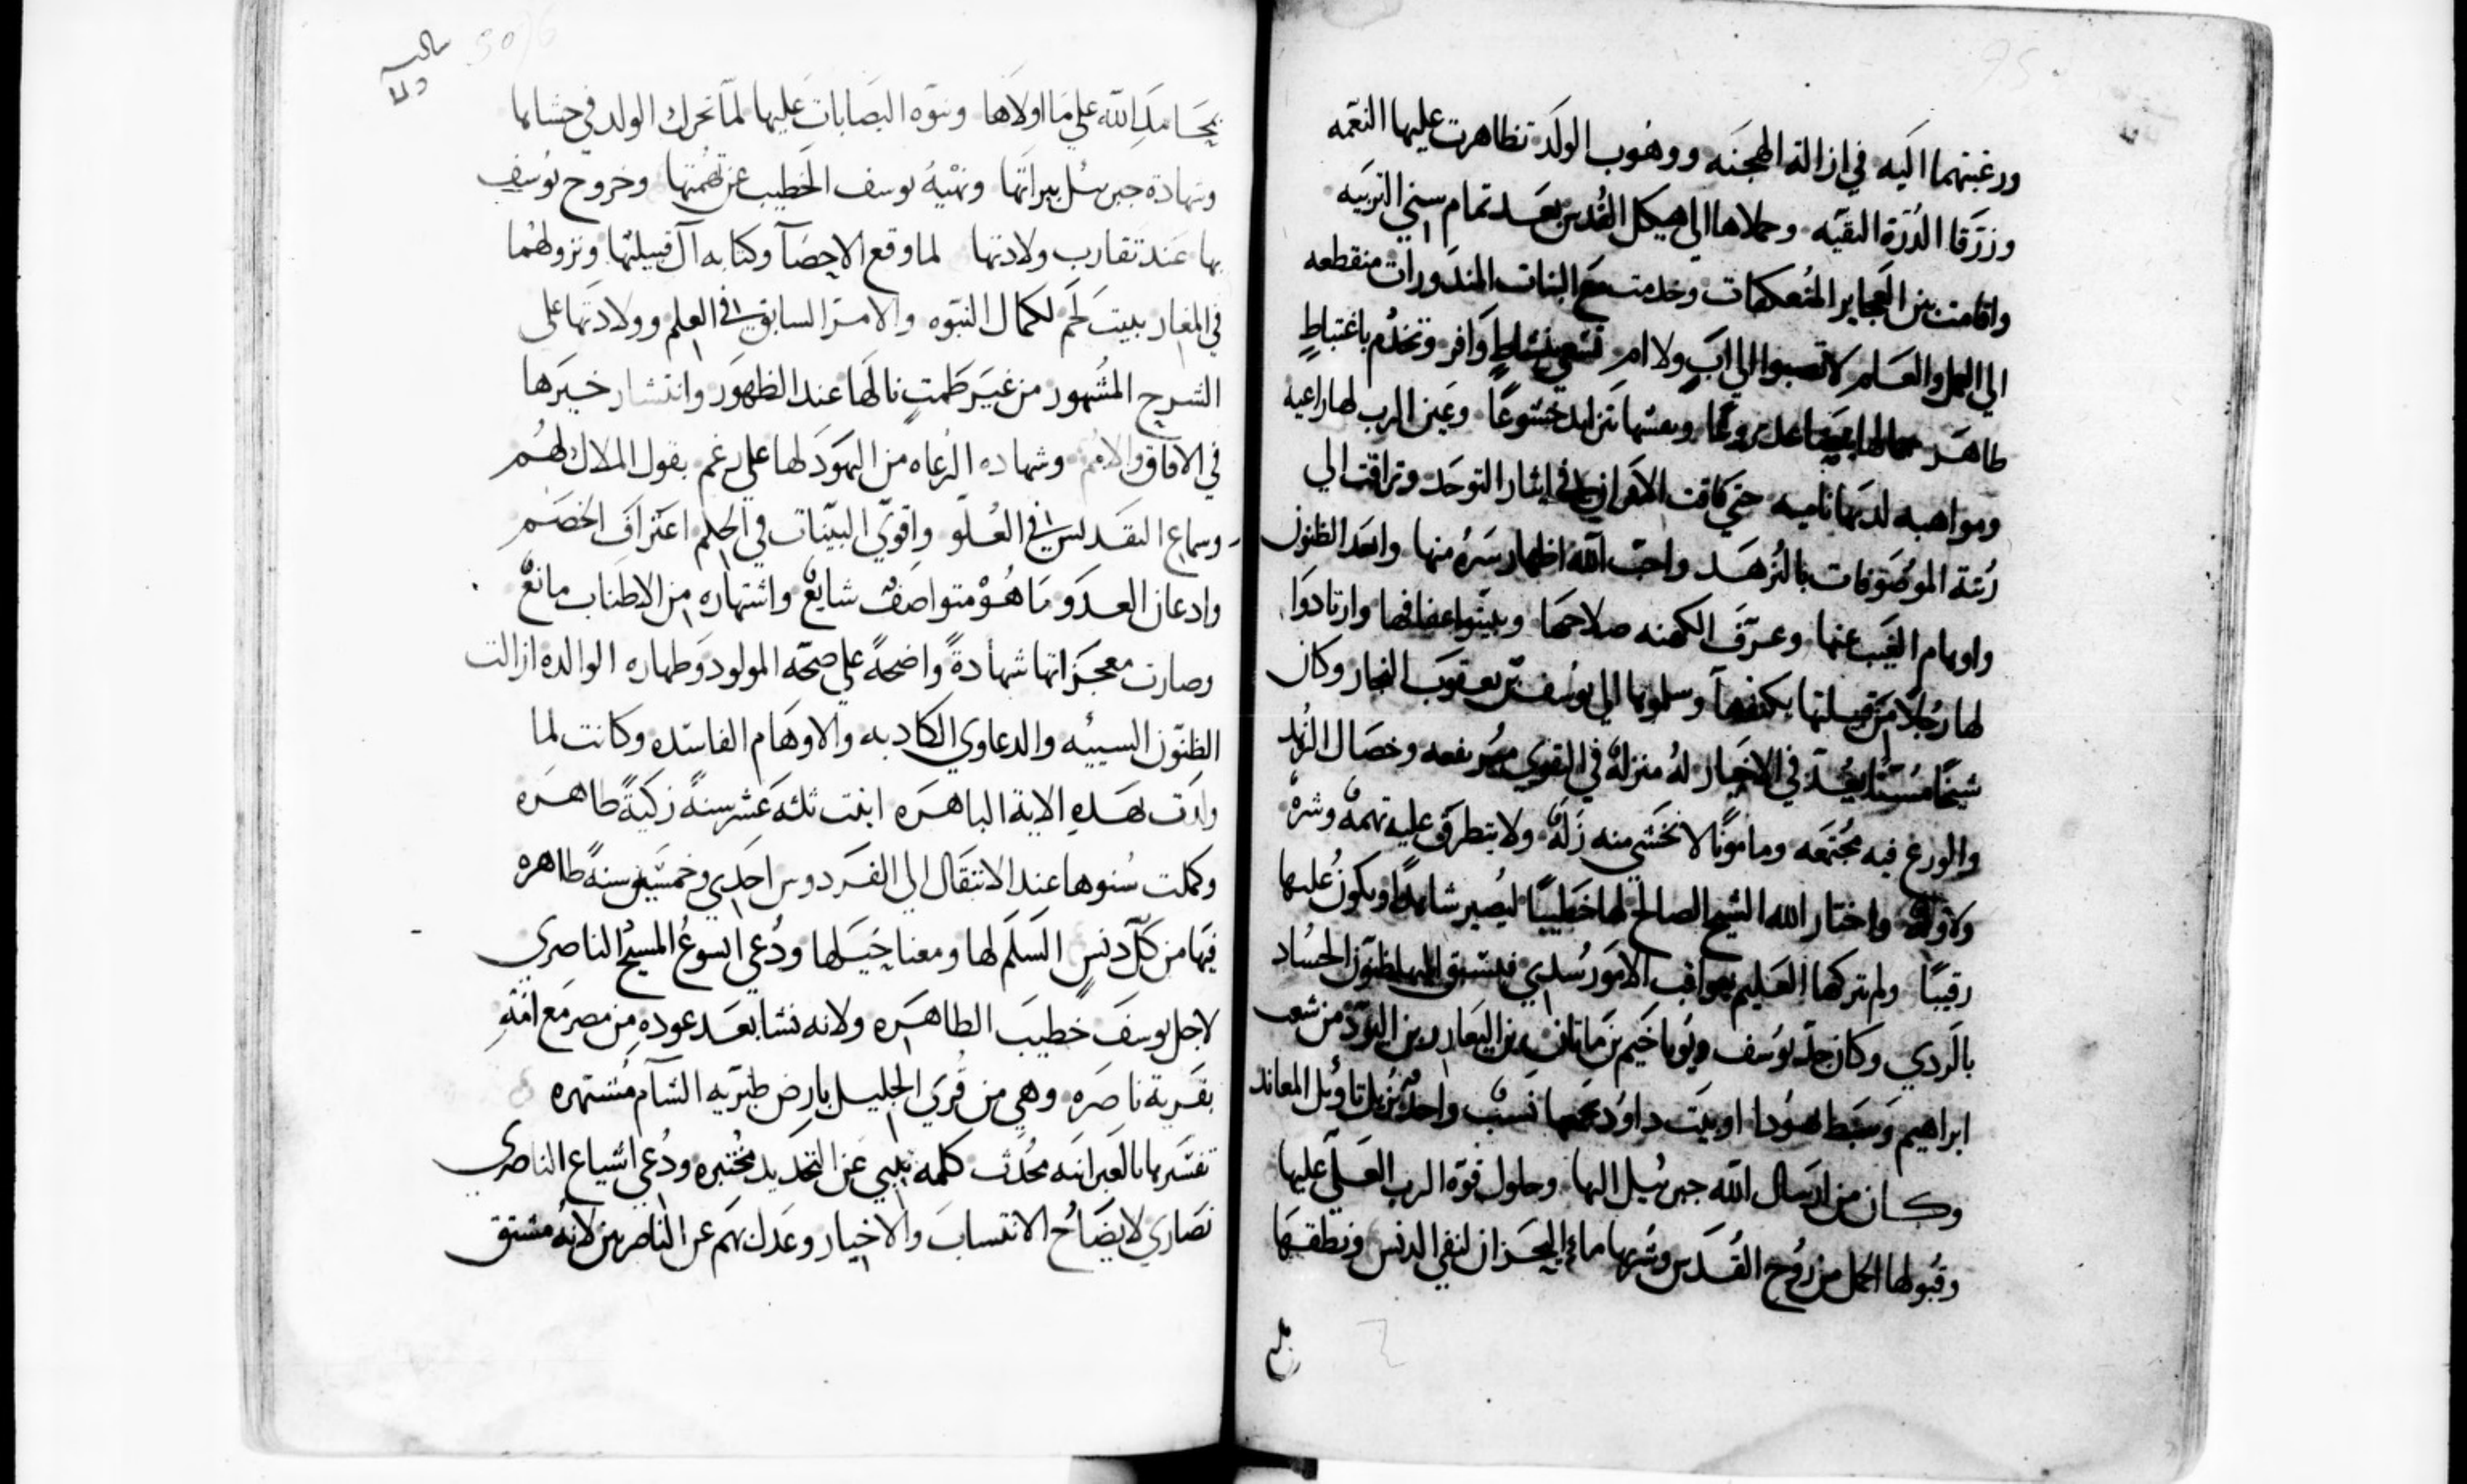 ورغبتهما اليه في ازالة الهجنه ووهوب الولد تظاهرت عليها النعمه
ورزقا الدرة النقيه وحملاها الى هيكل القدس بعد تمام سني التربيه
واقامت بين العجايز المتعكفات وخدمت مع البنات المندورات منقطعه
الي العمل والعلم لا تصبوا الي اب ولا ام تسعي بنشاط وافر وتخدم باغتباط
طاهر وعين الرب لها راعيه
ومواهبه لديها ناميه حتي فاقت الاقران في ايثار التوحد وتراقت الي
رتبة الموصوفات بالزهد واحب الله اظهار سره منها وابعد الظنون
واوهام الغيب عنها وعرف الكهنه صلاحها وبينوا عفافها وارتادوا
لها رجلا من قبيلتها يكنفها وسلموها الي يوسف بن يعقوب النجار وكان
شيخا مسنا يعد في الاخيار له منزلة في التقوي مرتفعه وخصال الزهد
والورع فيه مجتمعه ومامونا لا تخشي منه زلة ولا يتطرق عليه تهمة وشرة
واختار الله الشيخ الصالح لها خطيبا ليصير شاهدا ويكون عليها
رقيبا ولم يتركها العليم بعواقب الامور سدي فيتسبق اليها ظنون الحساد
بالردي وكان جد يوسف ويوياخيم بن ماتان بن اليعازر بن اليود من شعب
ابراهيم وسبط يهودا او بيت داود نسب واحد يزيل تاويل المعاند
وكان من ارسال الله جبرئيل اليها وحلول قوة الرب العلي عليها
وقبولها الحمل من روح القدس وشربها ماء البحر ان لنفي الدنس ونطقها
بمحامد الله علي ما اولاها ونبوه اليصابات عليها لما تحرك الولد في حشاها
وشهادة جبرئيل ببراتها وتنبيه يوسف الخطيب عن تهمتها وخروج يوسف
بها عند تقارب ولادتها لما وقع الاحصآ وكتابه آل قبيلتها ونزولهما
في المغار ببيت لحم لكمال النبوه والامر السابق في العلم وولادتها علي
الشرح المشهور من غير طمث نالها عند الظهور وانتشار خبرها
في الافاق والامم وشهاده الرعاه من اليهود لها علي رغم بقول الملاك لهم
وسماع التقديس في العلو واقوي البينات في الحلم اعتراف الخصم
وادعان العدو ما هو متواصف شايع واشتهاره من الاطناب مانع
وصارت معجزاتها شهادة واضحة علي صحه المولود وطهاره الوالده ازالت
الظنون السييه والدعاوي الكادبه والاوهام الفاسده وكانت لما
ولدت بهده الاية الباهره ابنت ثلثه عشر سنة زكية طاهره
وكملت سنوها عند الانتقال الي الفردوس احدي وخمسين سنة طاهره
فيها من كل دنس السلم لها ومعنا خيلها ودعي ايسوع المسيح الناصري
لاجل يوسف خطيب الطاهره ولانه نشا بعد عوده من مصر مع امه
بقرية ناصره وهي من قري الجليل بارض طبريه الشآم مشتهره
تفسرها بالعبرانيه محدث كلمه تنبي عن التجديد مختبره ودعي اشياع الناصري
نصاري لايضاح الانتساب والاخيار وعدل بهم عن الناصريين لانه مشتق